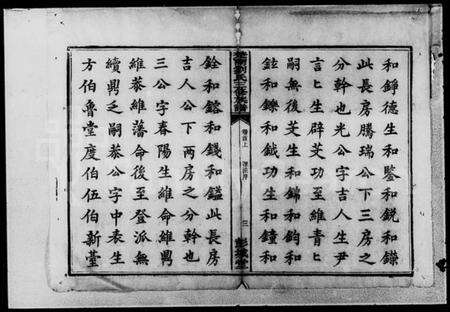 和錚德生和鑒和銳和鎌
此長房騰瑞公下三房之
分幹也光公字吉人生尹
言匕生辟芠功至維青匕
嗣無後芠生和錦和鈞和
鉉和鑠和鉞功生和鐘和
劉氏三修族譜
卷首上
三
彭城堂
銓和鎔和錢和鎰此長房
吉人公下兩房之分幹也
三公字春陽生維命維興
維恭維藩命後至登派無
續興乏嗣恭公字中表生
方伯魯堂度伯伍伯新臺